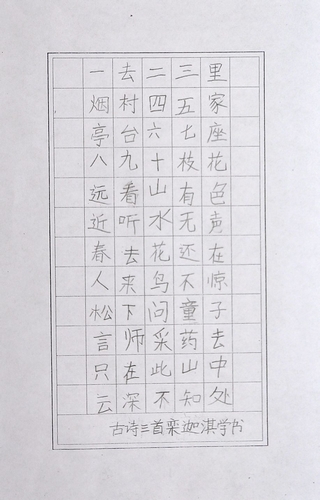 一去二三里
烟村四五家
亭台六七座
八九十枝花
远看山有色
近听水无声
春去花还在
人来鸟不惊
松下问童子
言师采药去
只在此山中
云深不知处
古诗三首栾迦淇学书